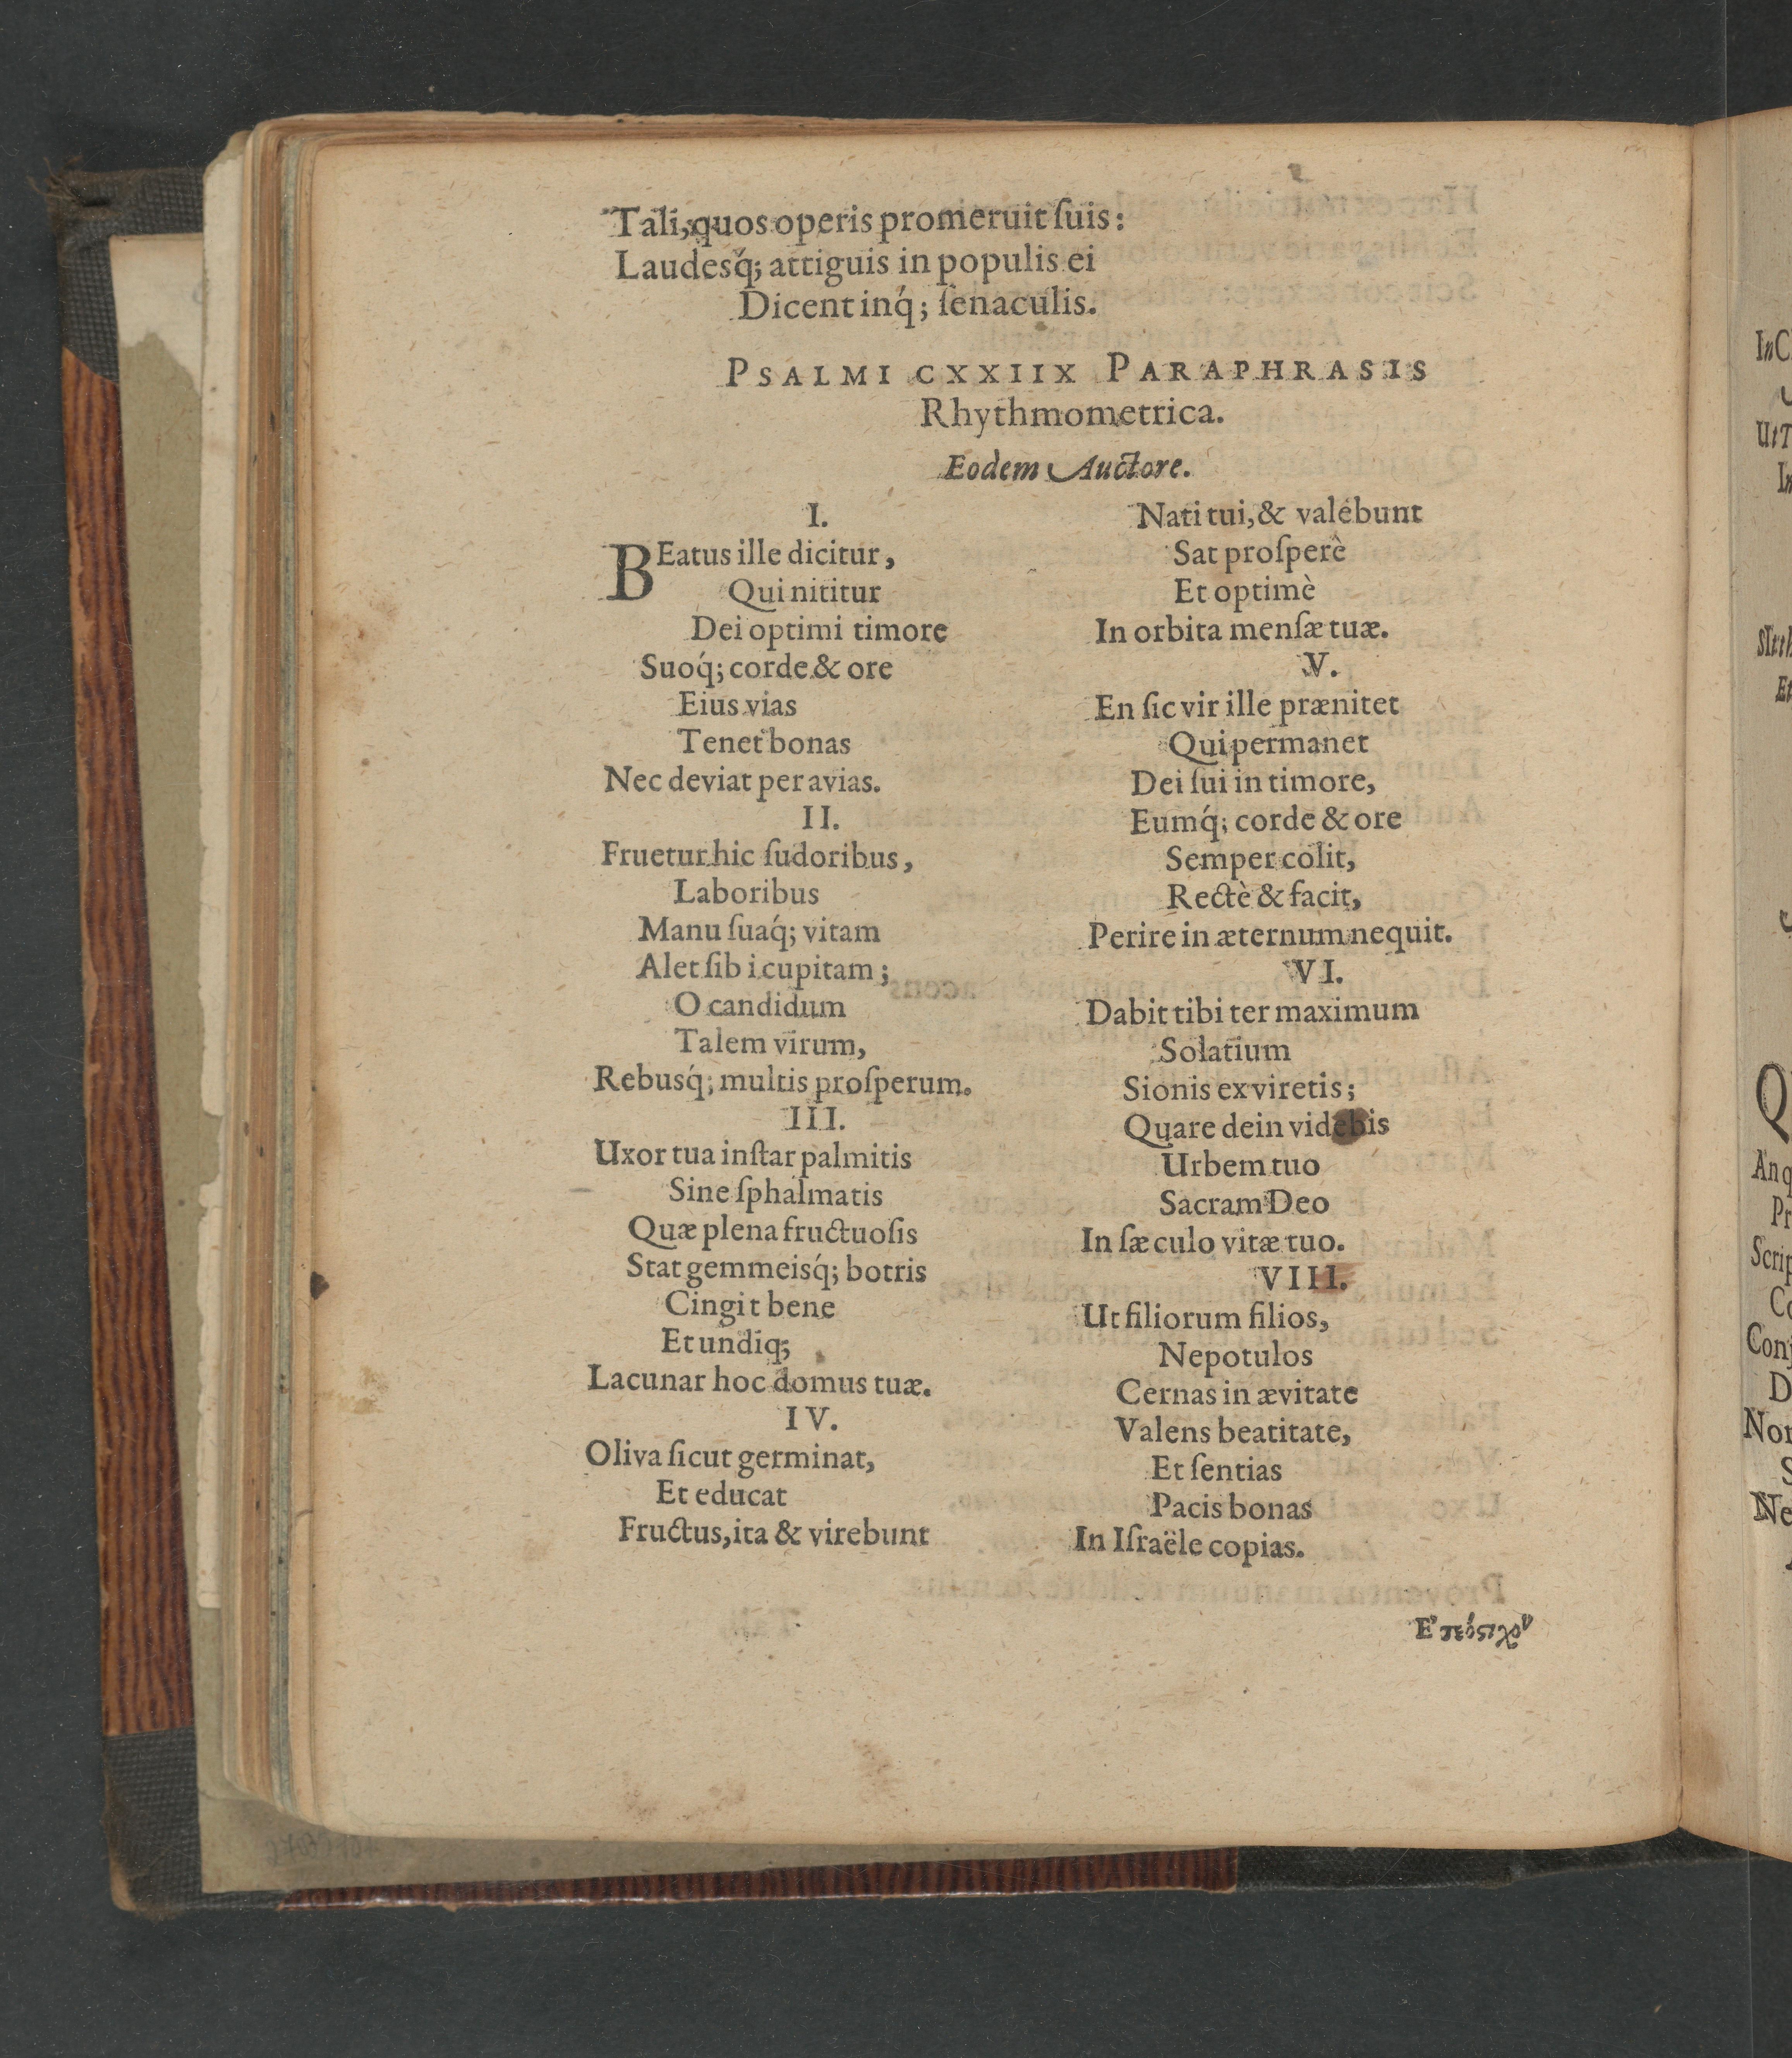 Tali, quos operis promeruit ſuis:
Laudesq́; attiguis in populis ei
Dicent inq́; ſenaculis.
PSALMI CXXIIX PARAPHRASIS
Rhythmometrica.
Eodem Auctore.
I.
BEatus ille dicitur,
Qui nititur
Dei optimi timore
Suoq́; corde & ore
Eius vias
Tenet bonas
Nec deviat per avias.
II.
Fruetur hic ſudoribus,
Laboribus
Manu ſuaq́; vitam
Alet ſibi cupitam;
O candidum
Talem virum,
Rebusq́; multis proſperum.
III.
Uxor tua inſtar palmitis
Sine ſphalmatis
Quæ plena fructuoſis
Stat gemmeisq́; botris
Cingit bene
Et undiq;
Lacunar hoc domus tuæ.
IV.
Oliva ſicut germinat,
Et educat
Fructus, ita & virebunt
Nati tui, & valebunt
Sat proſperè
Et optimè
In orbita menſæ tuæ.
V.
En ſic vir ille prænitet
Qui permanet
Dei ſui in timore,
Eumq́; corde & ore
Semper colit,
Rectè & facit,
Perire in æternum nequit.
VI.
Dabit tibi ter maximum
Solatium
Sionis ex viretis;
Quare dein videbis
Urbem tuo
Sacram Deo
In ſæculo vitæ tuo.
VIII.
Ut filiorum filios,
Nepotulos
Cernas in ævitate
Valens beatitate,
Et ſentias
Pacis bonas
In Iſraële copias.
InC
UtT
In
Et
Q
An q
Pr
Scrip
Co
Conj
D
Non
S
Ne